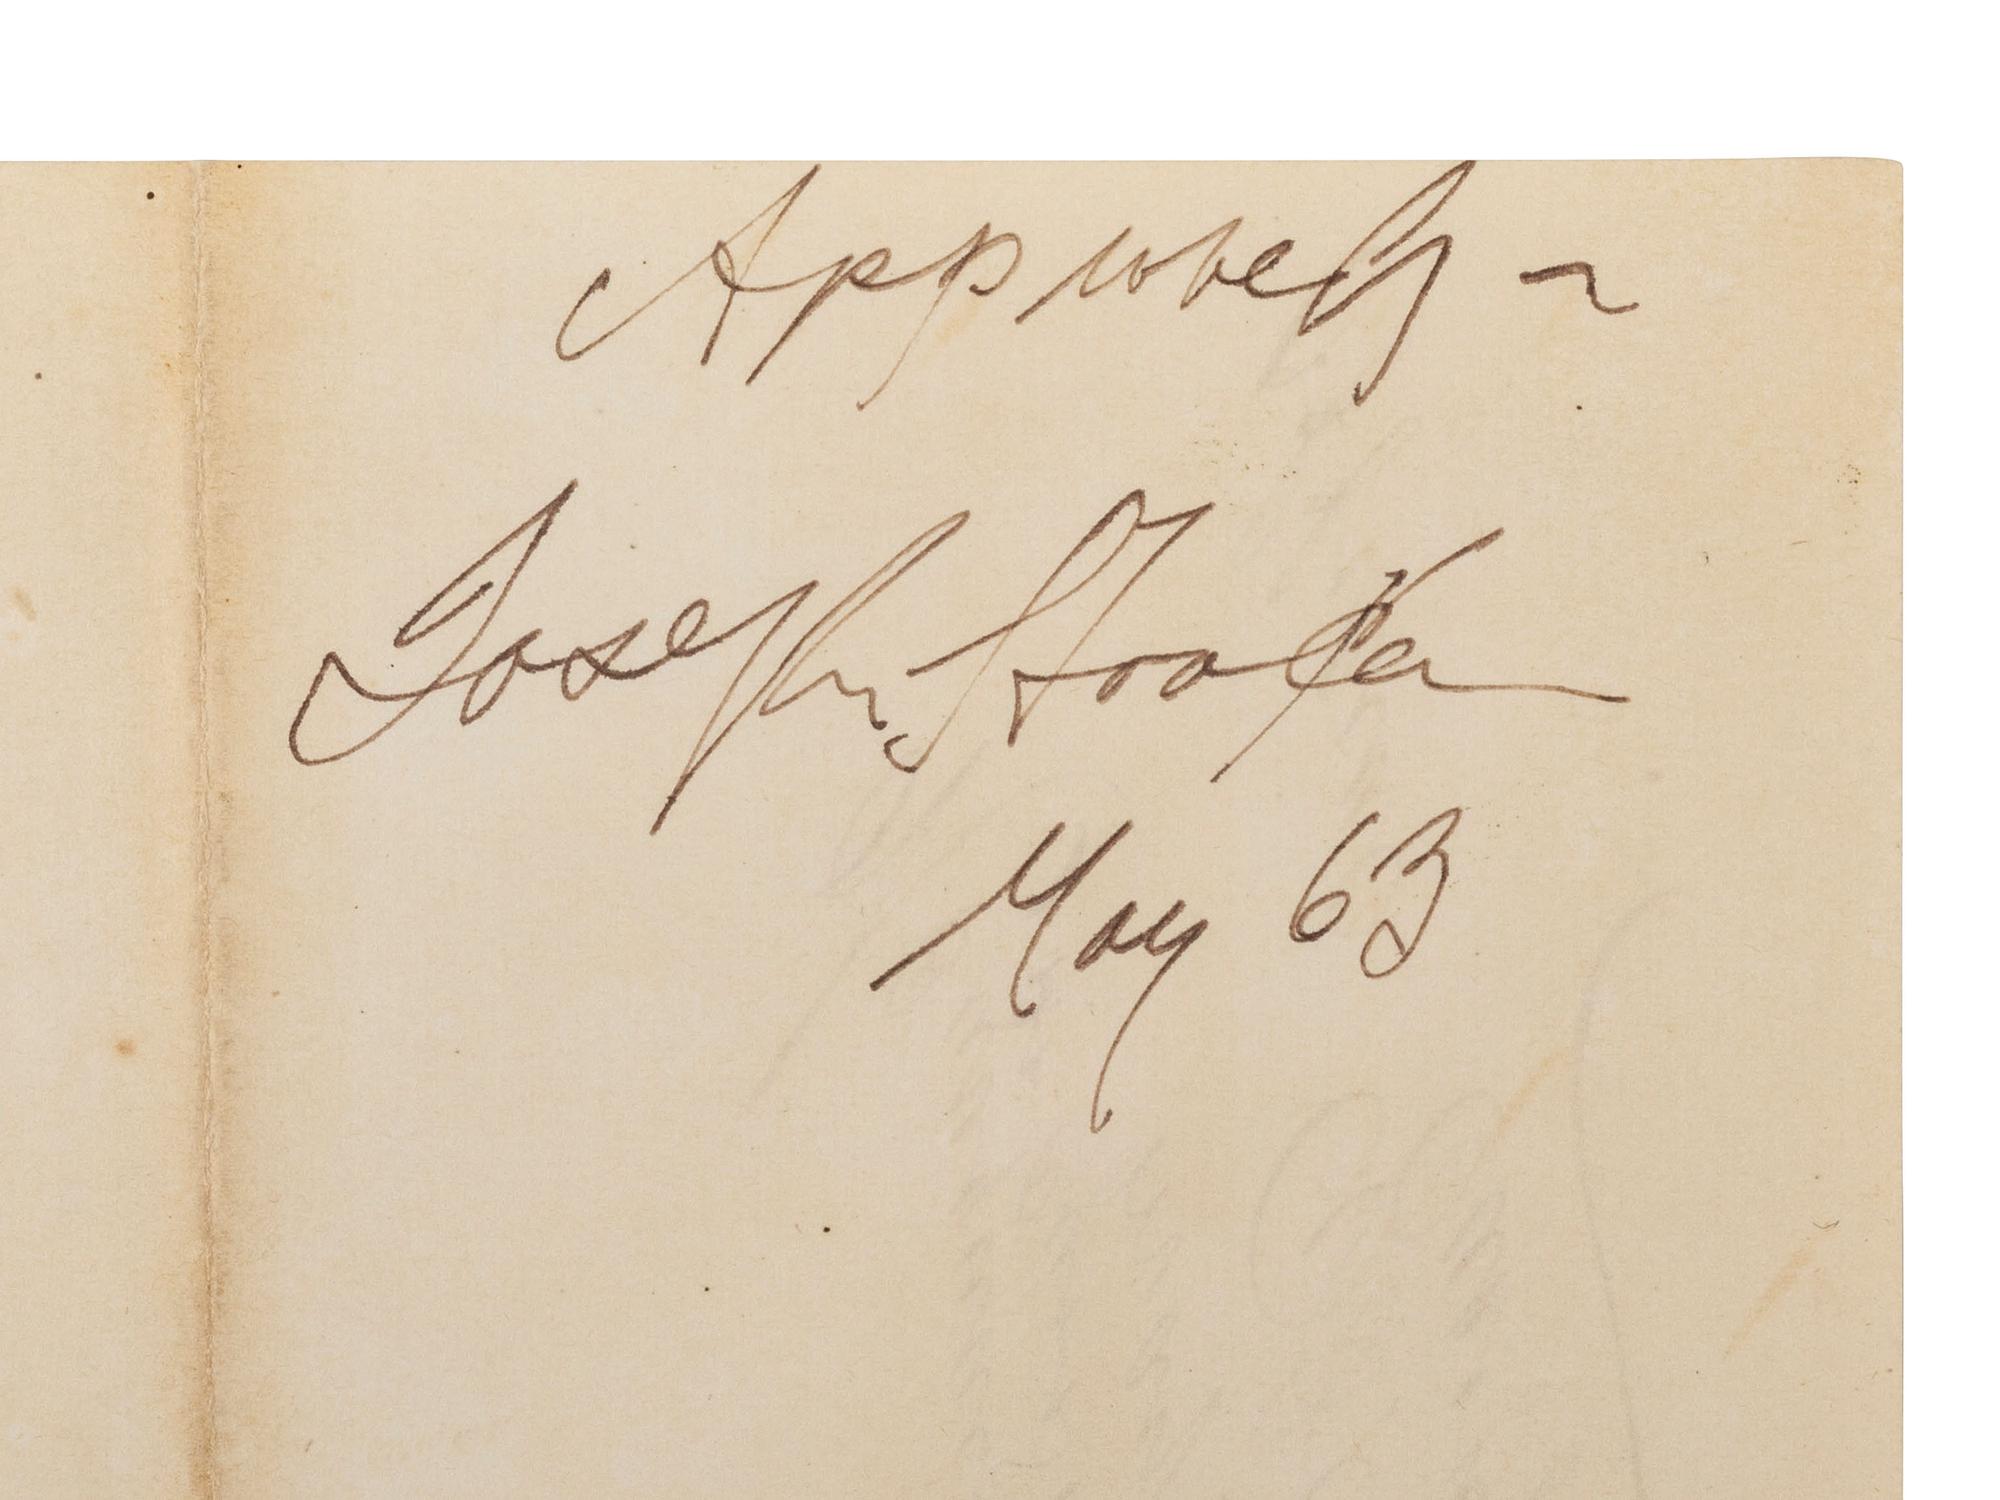 Approved ~
Joseph Hooker
May 63